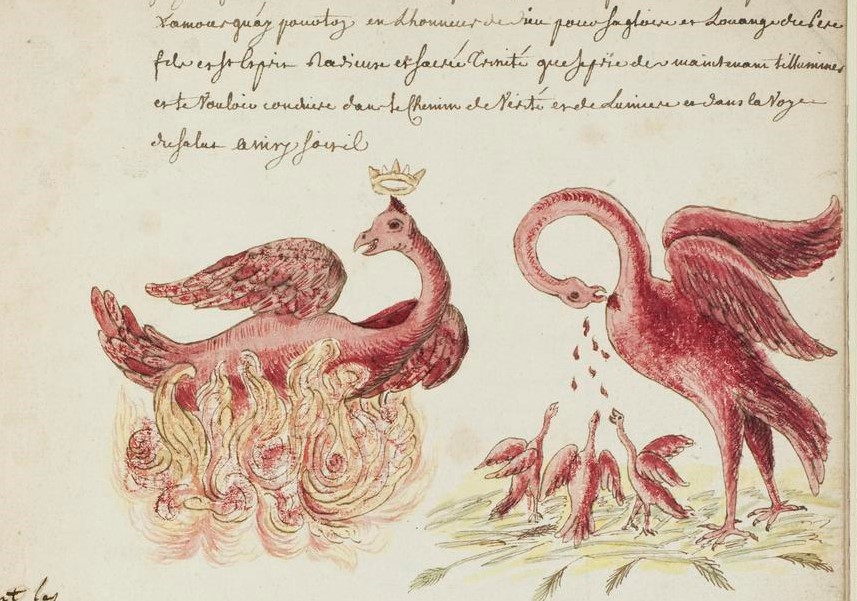 L'amour quay pour toy en Lhonneur de Dieu pour sa gloire et Louange du Pere
fils et st Esprit Radieuse et sacrée Trinité que je prie de maintenant tilluminer
et te Vouloir conduire dans le Chemin de Vérité et de Lumiere et dans la Voye
du Salut ainsy soit il
nt les